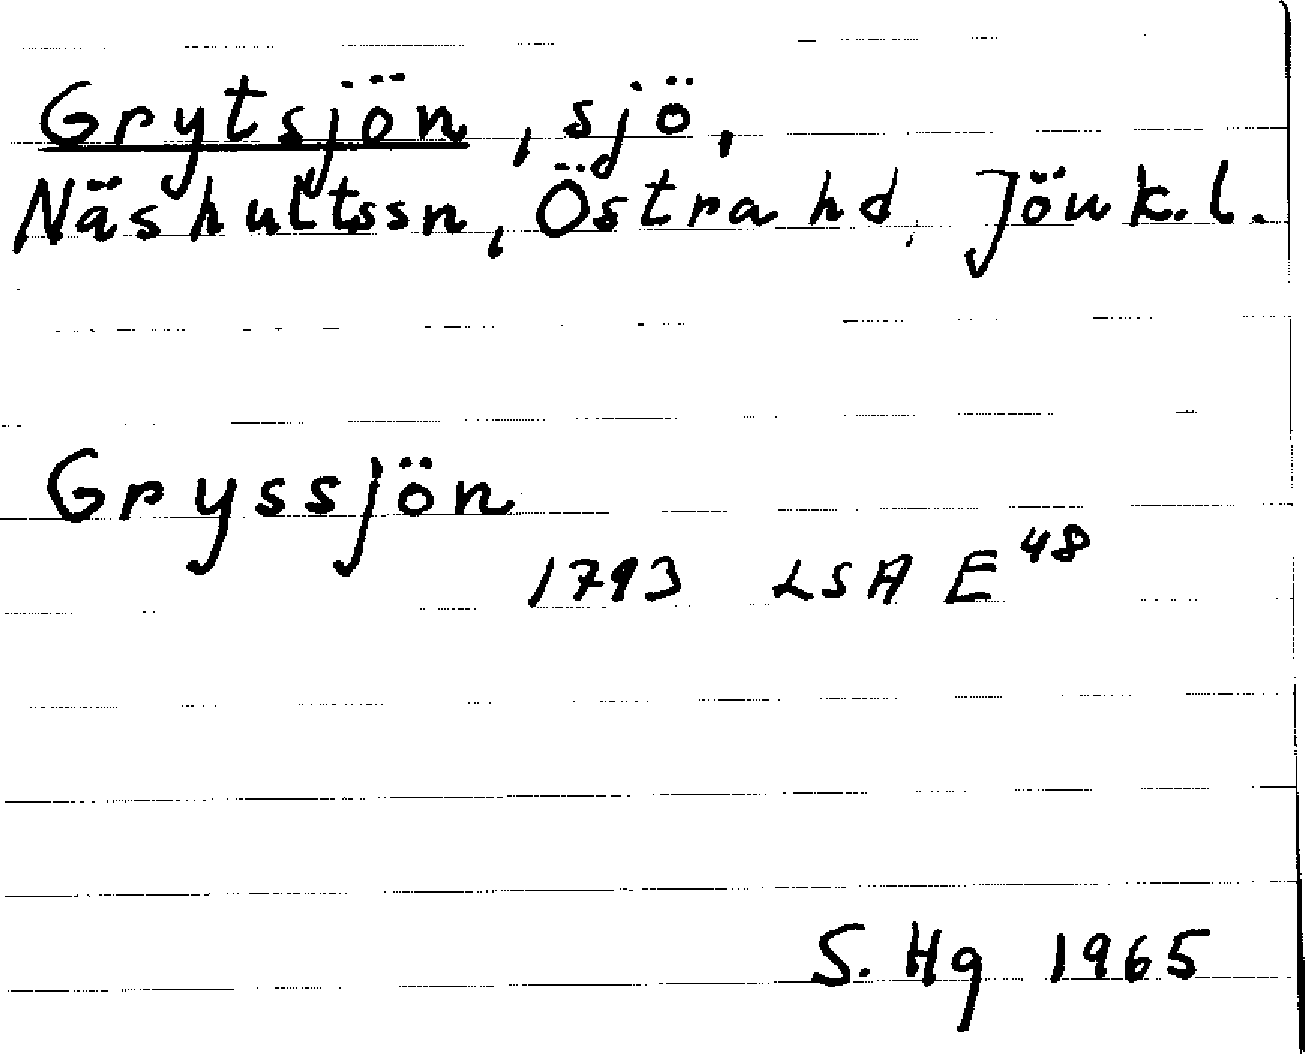 Grytsjön, sjö,
Näshultssn, Östra hd, Jönk.l.
Gryssjön
1793 LSA E 48
S. Hg 1965